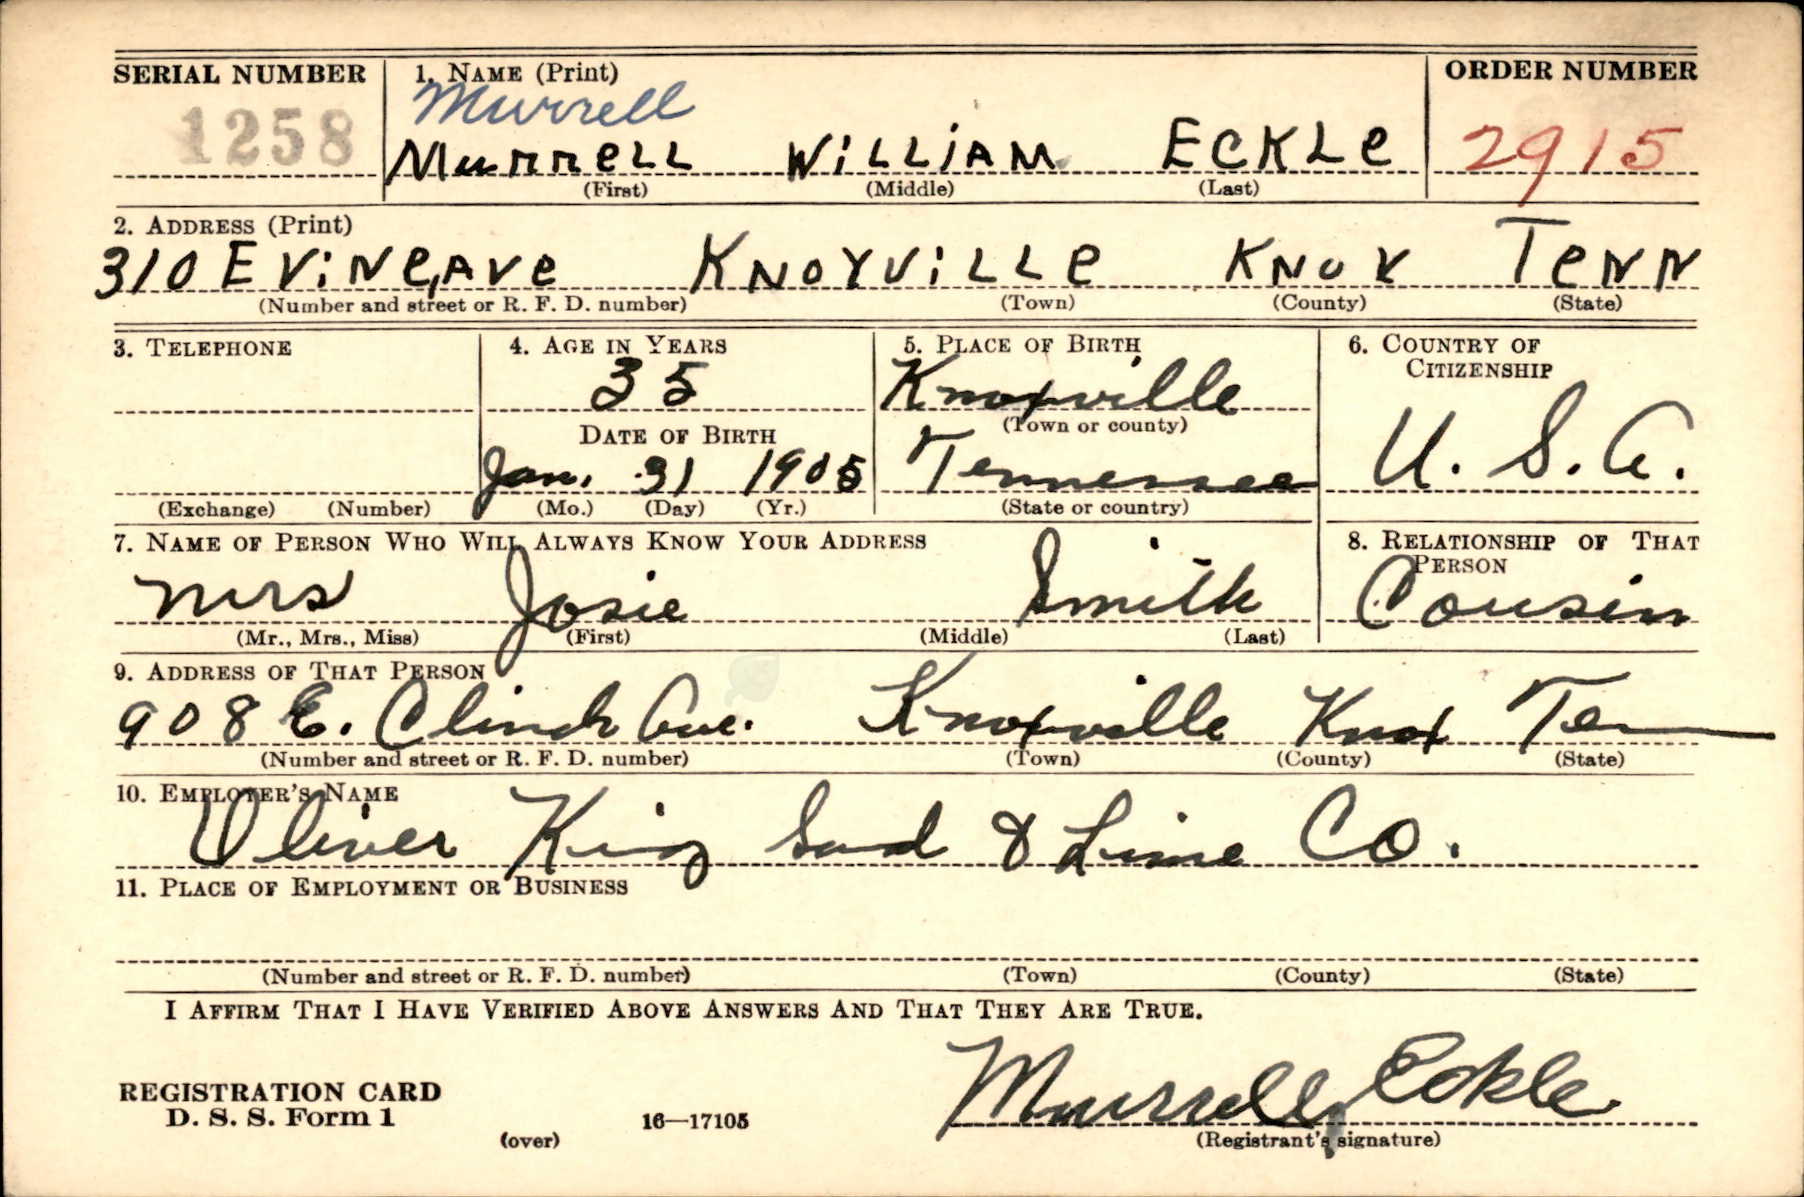 SERIAL NUMBER 1. NAME (Print) ORDER NUMBER
Murrell
1258 MURRELL WILLIAM ECKLE 2915
(First) (Middle) (Last)
2. ADDRESS (Print)
310 E VINE, AVE KNOXVILLE KNOX TENN
(Number and street or R. F. D. number) (Town) (County) (State)
3. TELEPHONE 4. AGE IN YEARS 5. PLACE OF BIRTH 6. COUNTRY OF CITIZENSHIP
35 Knoxville
(Town or county)
DATE OF BIRTH U. S. A.
Jan. 31 1905 Tennessee
(Exchange) (Number) (Mo.) (Day) (Yr.) (State or country)
7. NAME OF PERSON WHO WILL ALWAYS KNOW YOUR ADDRESS 8. RELATIONSHIP OF THAT PERSON
Mrs Josie Smith Cousin
(Mr., Mrs., Miss) (First) (Middle) (Last)
9. ADDRESS OF THAT PERSON
908 E. Clinch Ave. Knoxville Knox Ten
(Number and street or R. F. D. number) (Town) (County) (State)
10. EMPLOYER'S NAME
Oliver King Sand & Lime Co.
11. PLACE OF EMPLOYMENT OR BUSINESS
(Number and street or R. F. D. number) (Town) (County) (State)
I AFFIRM THAT I HAVE VERIFIED ABOVE ANSWERS AND THAT THEY ARE TRUE.
Murrell Eckle
REGISTRATION CARD
D. S. S. Form 1 16—17105
(over) (Registrant's signature)